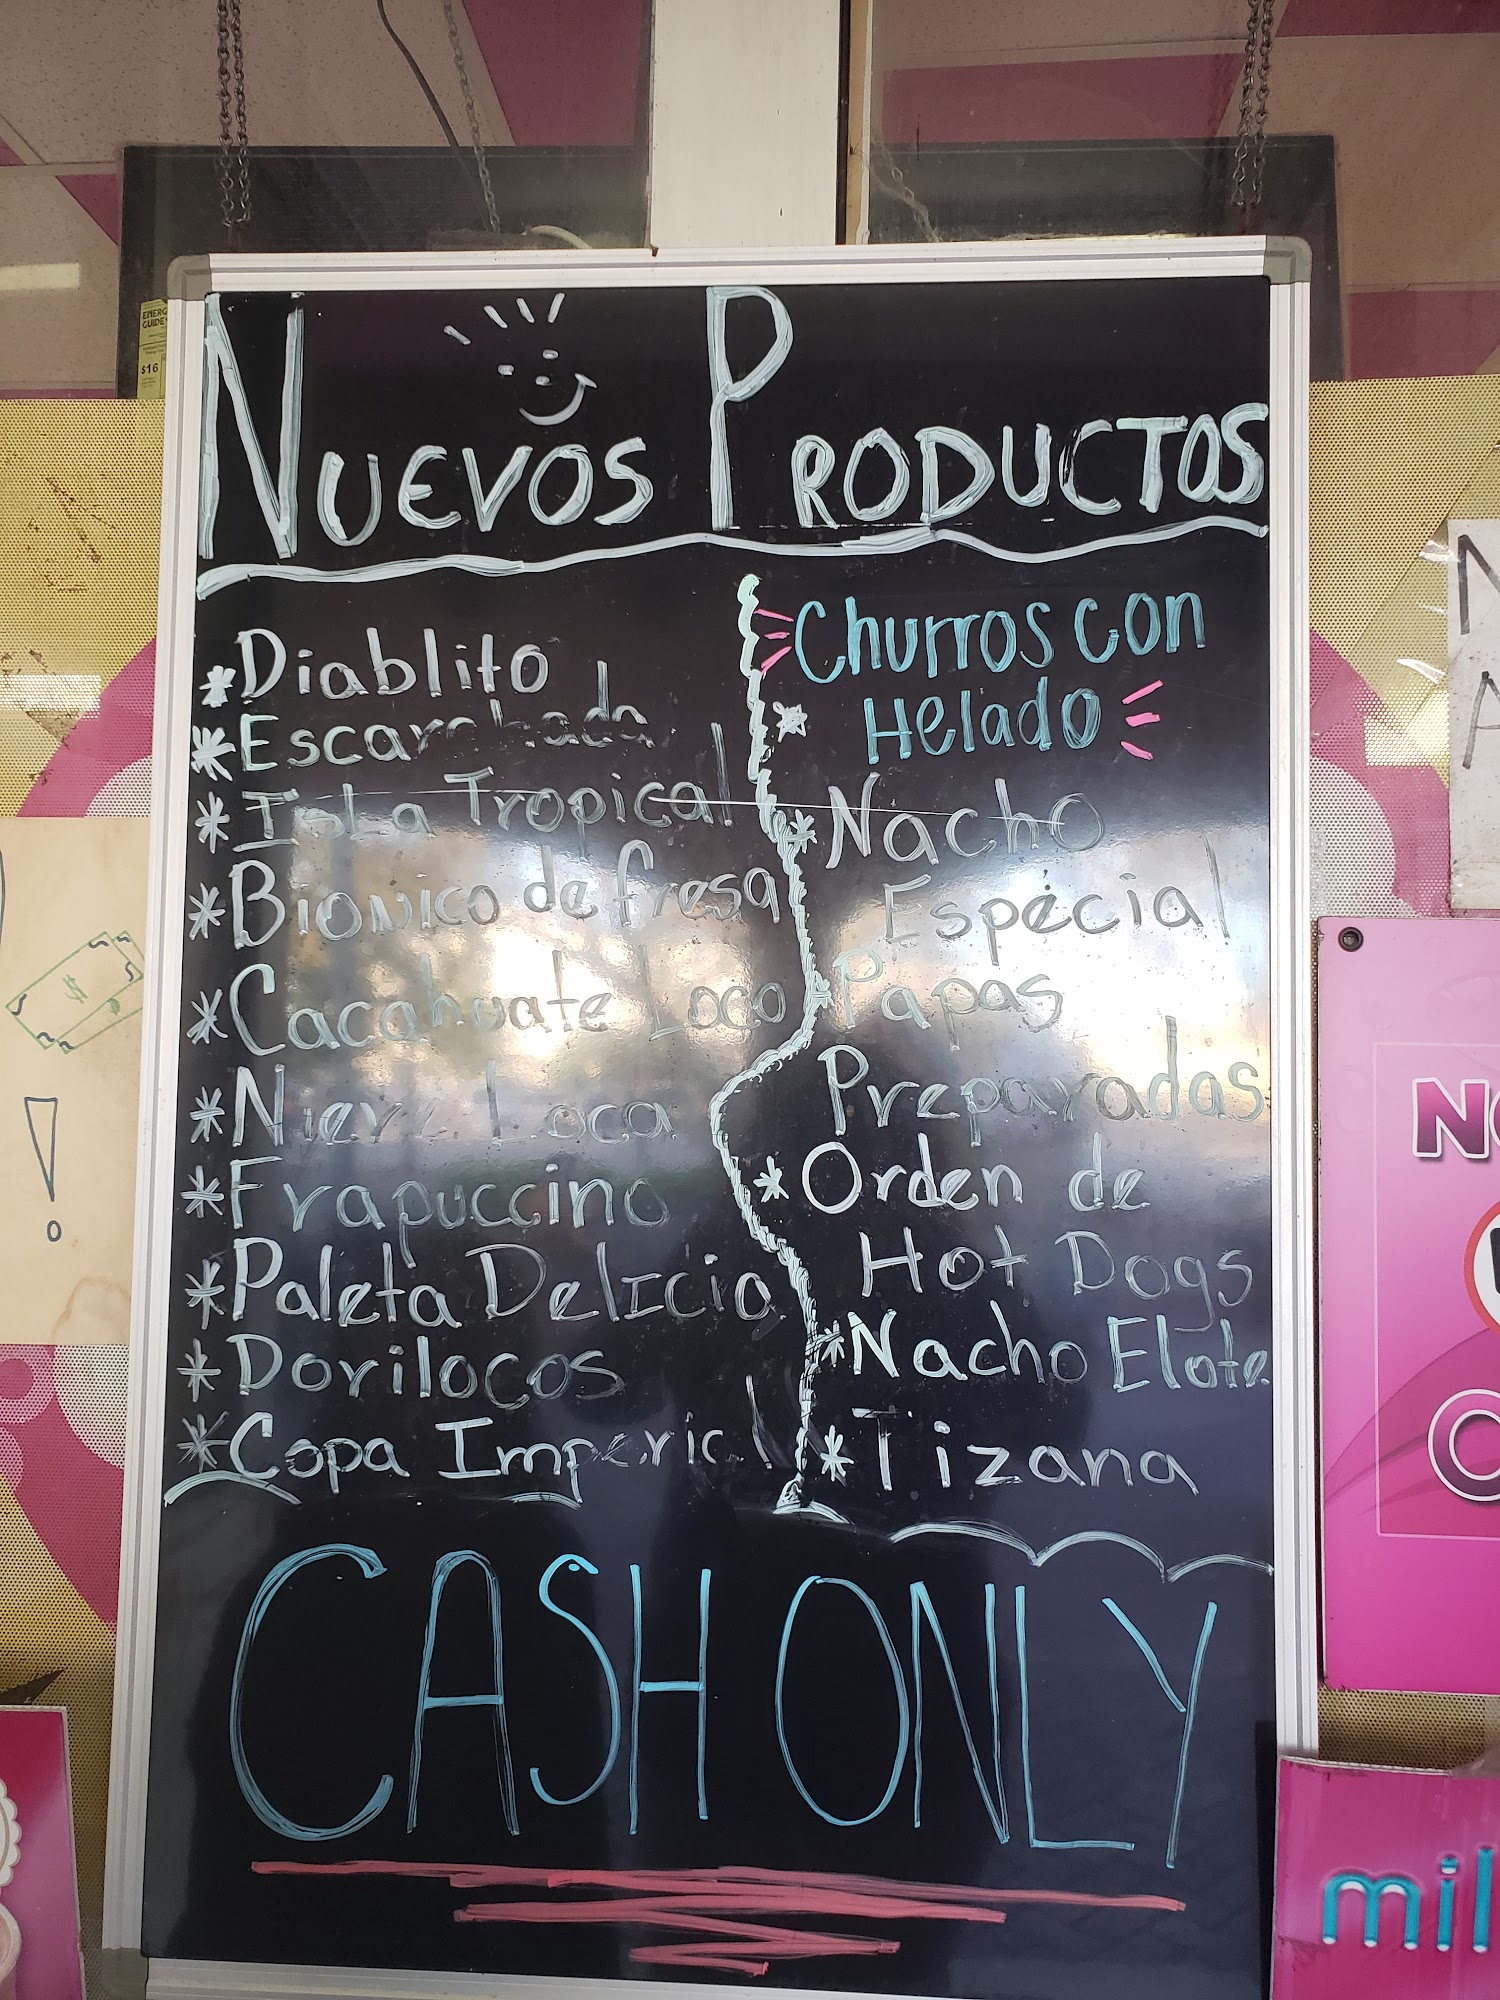 ENERG
GUIDE
$16
NUEVOS PRODUCTOS
* Diablito
* Escarchada
* Isla Tropical
* Bionico de fresa
* Cacahuate Loco
* Nieve Loca
* Frapuccino
* Paleta Delicia
* Dorilocos
* Copa Imperial
Churros con
* Helado
* Nacho
Especial
* Papas
Preparadas
* Orden de
Hot Dogs
* Nacho Elote
* Tizana
CASH ONLY
$
!
N
A
NO
O
mil